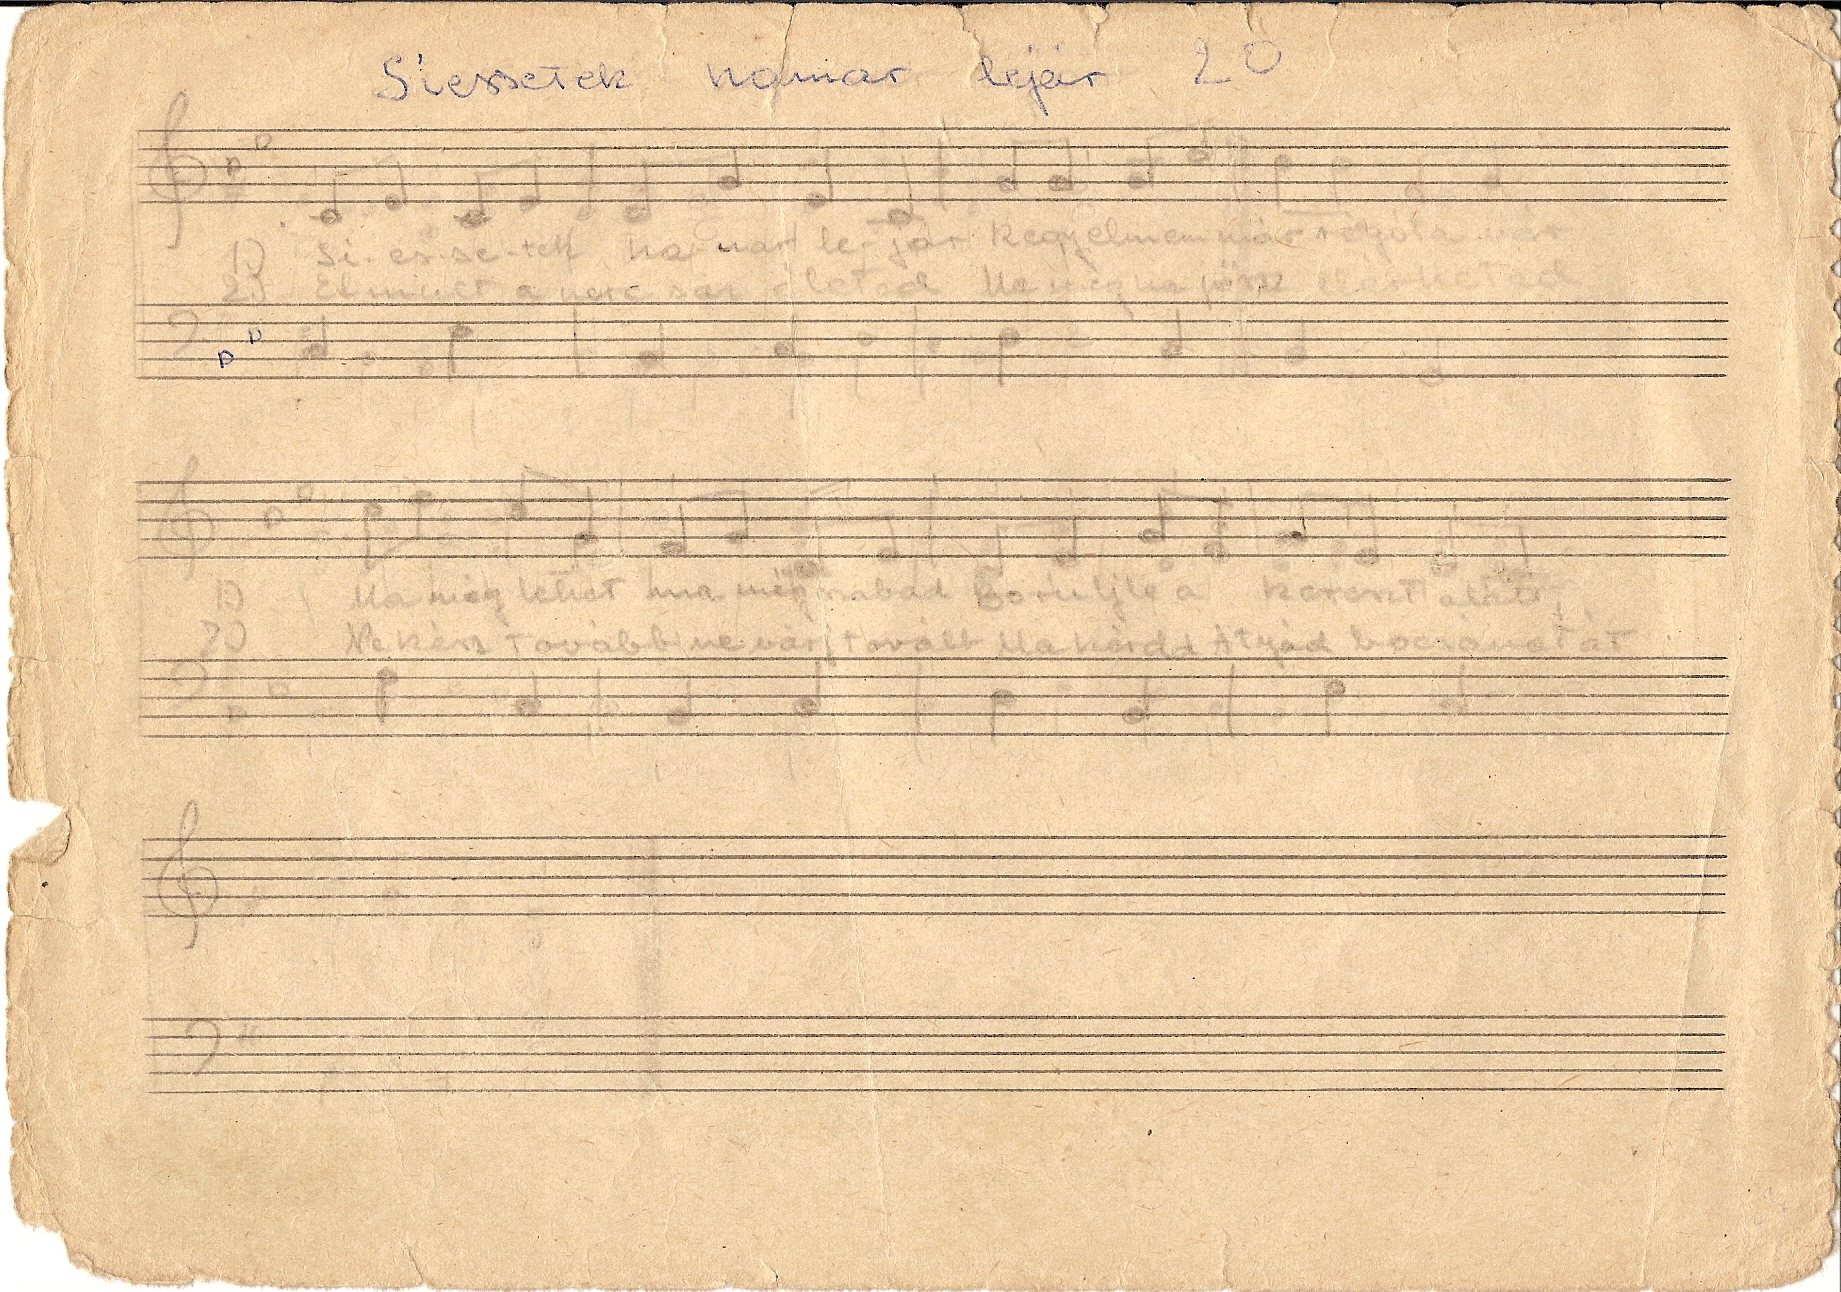 Siessetek hamar lejár 20
1) Si-es-se-tek ha mar le jár kegyelmem már rég óta vár
2) Elmúlt a nem sok életed Ma még ha jösz elérheted
1) Ma még lehet ma még szabad Borulj le a kereszt alatt
2) Ne késs tovább ne várj tovább Ma kérd Atyád bocsánatát